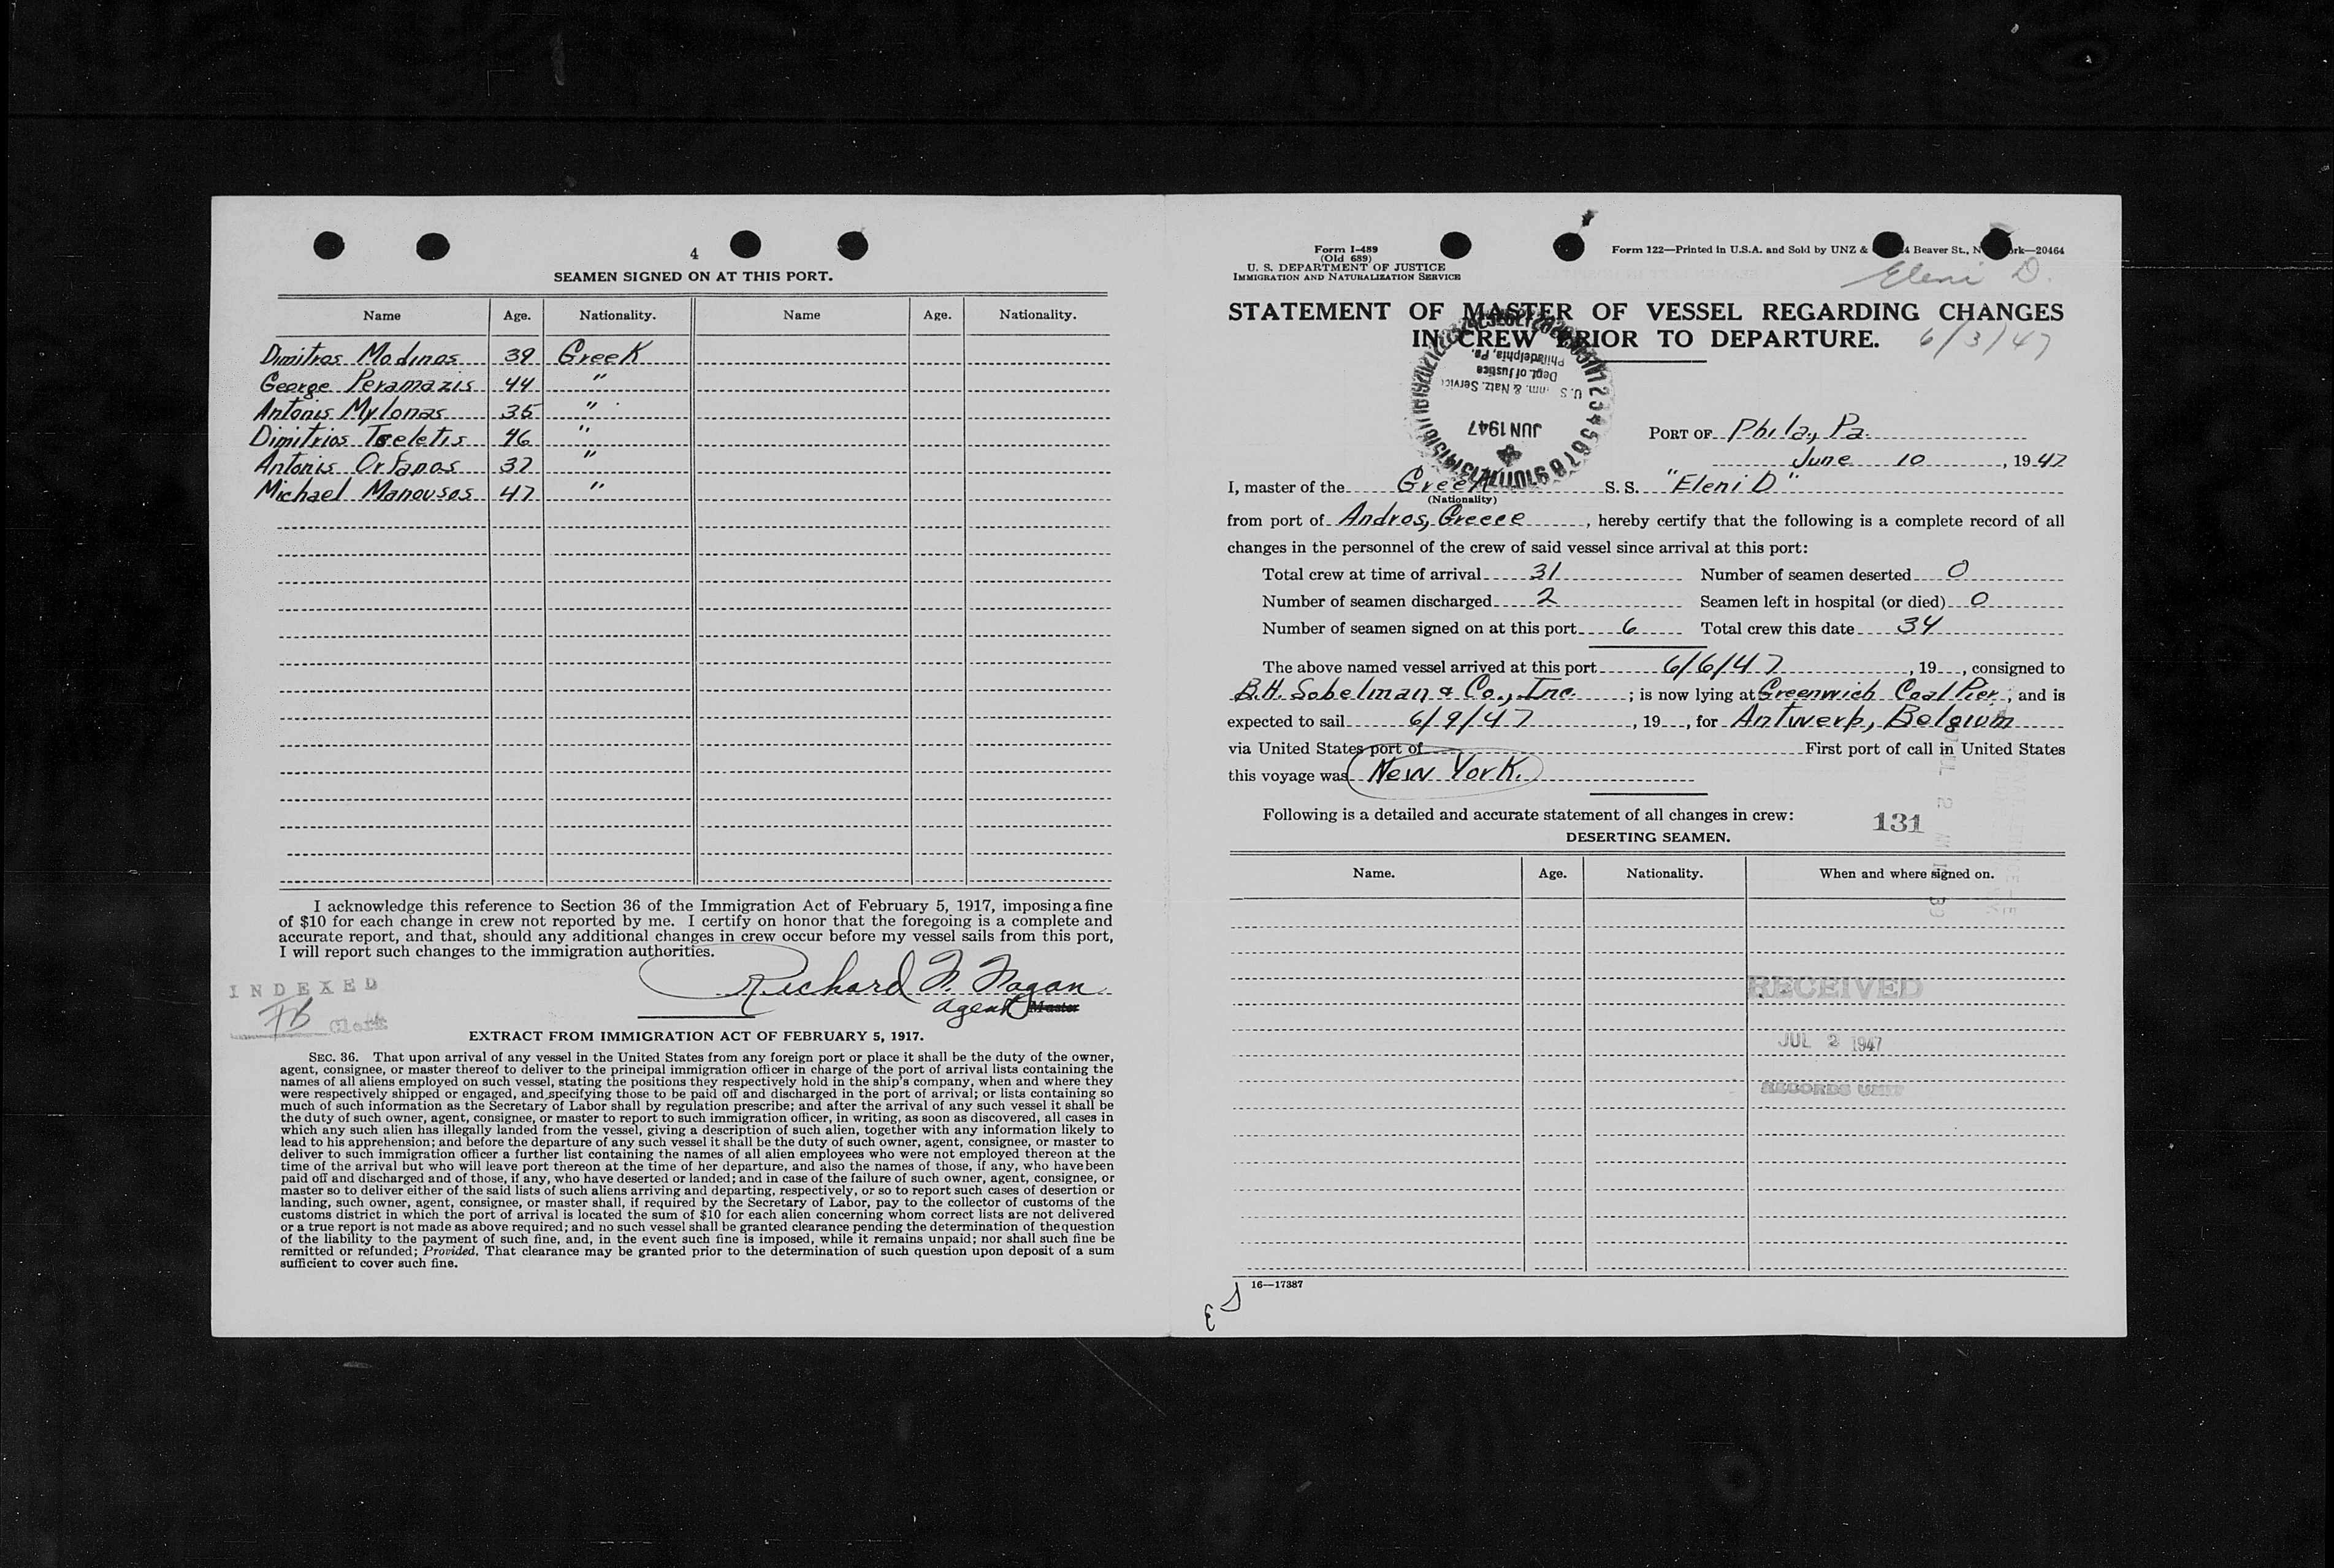 4
SEAMEN SIGNED ON AT THIS PORT.
Name Age. Nationality. Name Age. Nationality.
Dimitros Modinos 39 Greek
George Peramazis 44 "
Antonis Mylonas 35 "
Dimitrios Tseletis 46 "
Antonis Orfanos 37 "
Michael Manousos 47 "
I acknowledge this reference to Section 36 of the Immigration Act of February 5, 1917, imposing a fine
of $10 for each change in crew not reported by me. I certify on honor that the foregoing is a complete and
accurate report, and that, should any additional changes in crew occur before my vessel sails from this port,
I will report such changes to the immigration authorities.
INDEXED
Clerk
Richard F. Fagan
Agent Master
EXTRACT FROM IMMIGRATION ACT OF FEBRUARY 5, 1917.
SEC. 36. That upon arrival of any vessel in the United States from any foreign port or place it shall be the duty of the owner,
agent, consignee, or master thereof to deliver to the principal immigration officer in charge of the port of arrival lists containing the
names of all aliens employed on such vessel, stating the positions they respectively hold in the ship's company, when and where they
were respectively shipped or engaged, and specifying those to be paid off and discharged in the port of arrival; or lists containing so
much of such information as the Secretary of Labor shall by regulation prescribe; and after the arrival of any such vessel it shall be
the duty of such owner, agent, consignee, or master to report to such immigration officer, in writing, as soon as discovered, all cases in
which any such alien has illegally landed from the vessel, giving a description of such alien, together with any information likely to
lead to his apprehension; and before the departure of any such vessel it shall be the duty of such owner, agent, consignee, or master to
deliver to such immigration officer a further list containing the names of all alien employees who were not employed thereon at the
time of the arrival but who will leave port thereon at the time of her departure, and also the names of those, if any, who have been
paid off and discharged and of those, if any, who have deserted or landed; and in case of the failure of such owner, agent, consignee, or
master so to deliver either of the said lists of such aliens arriving and departing, respectively, or so to report such cases of desertion or
landing, such owner, agent, consignee, or master shall, if required by the Secretary of Labor, pay to the collector of customs of the
customs district in which the port of arrival is located the sum of $10 for each alien concerning whom correct lists are not delivered
or a true report is not made as above required; and no such vessel shall be granted clearance pending the determination of the question
of the liability to the payment of such fine, and, in the event such fine is imposed, while it remains unpaid; nor shall such fine be
remitted or refunded; Provided, That clearance may be granted prior to the determination of such question upon deposit of a sum
sufficient to cover such fine.
Form I-489
(Old 689)
U. S. DEPARTMENT OF JUSTICE
IMMIGRATION AND NATURALIZATION SERVICE
Form 122—Printed in U.S.A. and Sold by UNZ & 4 Beaver St., N rk—20464
Eleni D.
STATEMENT OF MASTER OF VESSEL REGARDING CHANGES
IN CREW PRIOR TO DEPARTURE.
6/3/47
U. S. Imm. & Natz. Service
Dept. of Justice
Philadelphia, Pa.
JUN 1947
PORT OF Phila., Pa.
June 10, 1947
I, master of the Greek S. S. "Eleni D"
(Nationality)
from port of Andros, Greece, hereby certify that the following is a complete record of all
changes in the personnel of the crew of said vessel since arrival at this port:
Total crew at time of arrival 31 Number of seamen deserted 0
Number of seamen discharged 2 Seamen left in hospital (or died) 0
Number of seamen signed on at this port 6 Total crew this date 34
The above named vessel arrived at this port 6/6/47, 19, consigned to
B.H. Sobelman & Co., Inc. ; is now lying at Greenwich Coal Pier, and is
expected to sail 6/9/47, 19, for Antwerp, Belgium
via United States port of First port of call in United States
this voyage was New York.
Following is a detailed and accurate statement of all changes in crew:
131
DESERTING SEAMEN.
Name. Age. Nationality. When and where signed on.
RECEIVED
JUL 2 1947
RECORDS UNIT
16—17387